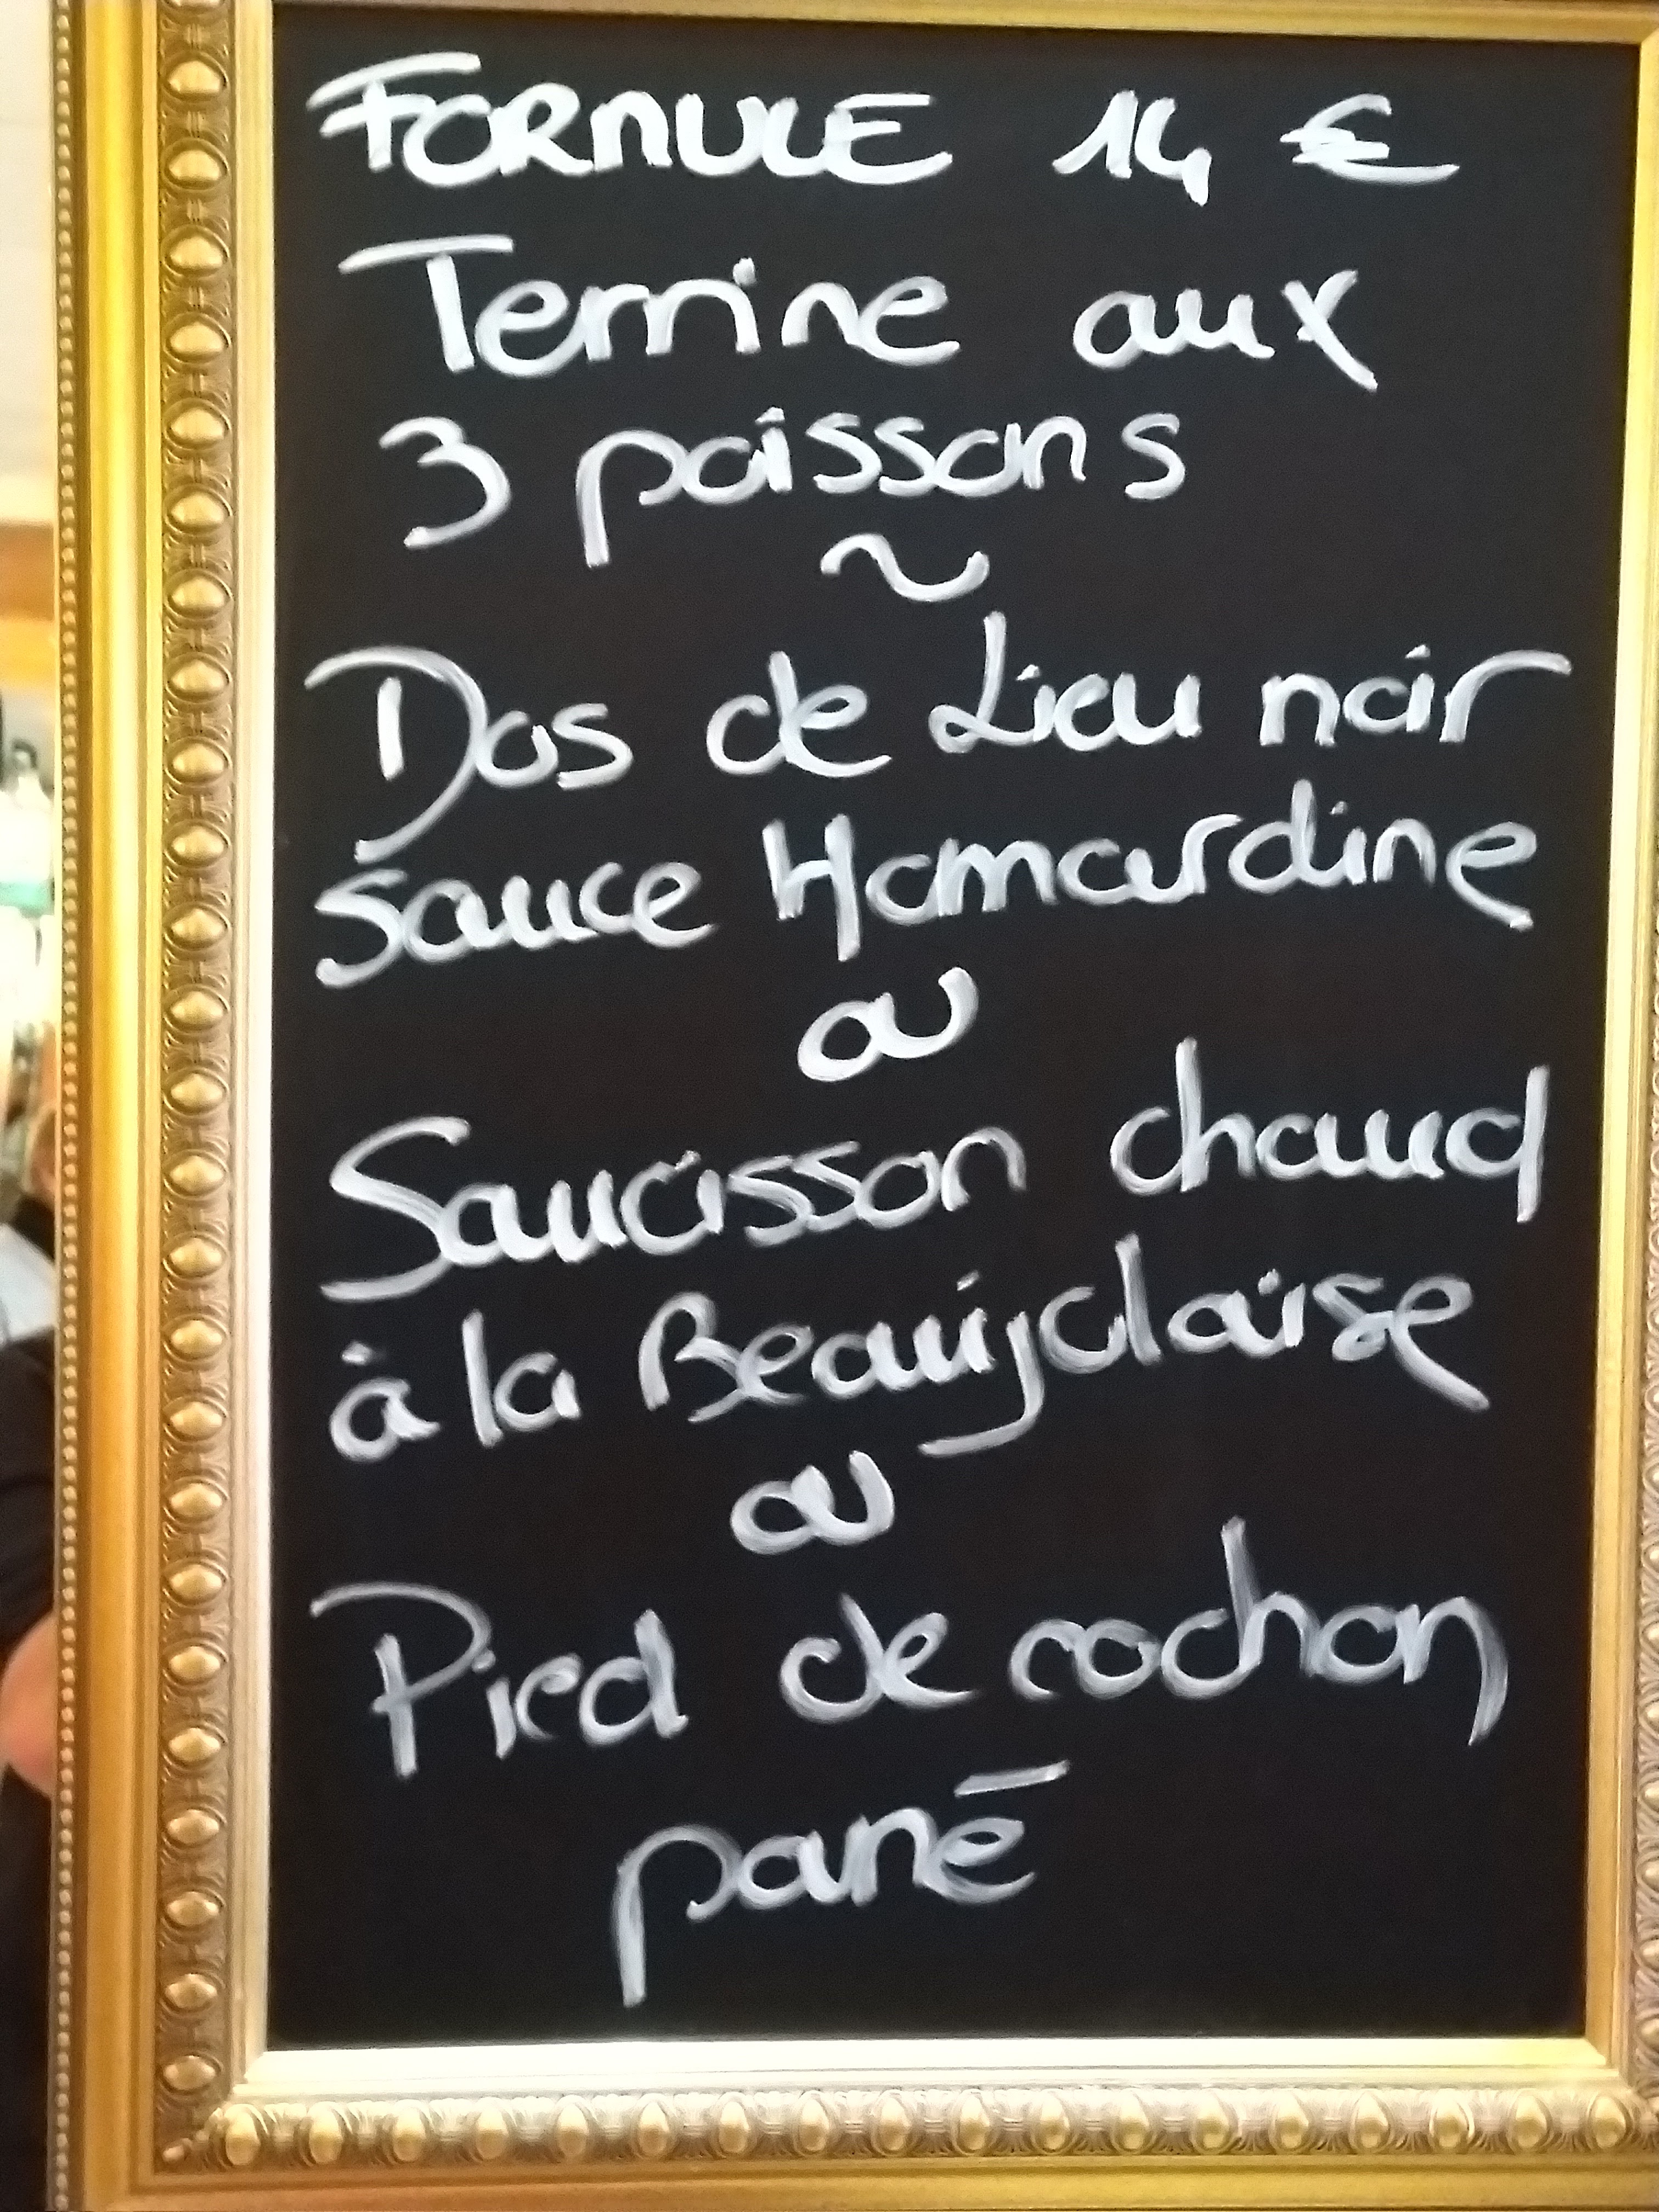 FORMULE 14 €
Terrine aux
3 poissons
~
Dos de Lieu noir
sauce Homardine
ou
Saucisson chaud
à la Beaujolaise
ou
Pied de cochon
pané